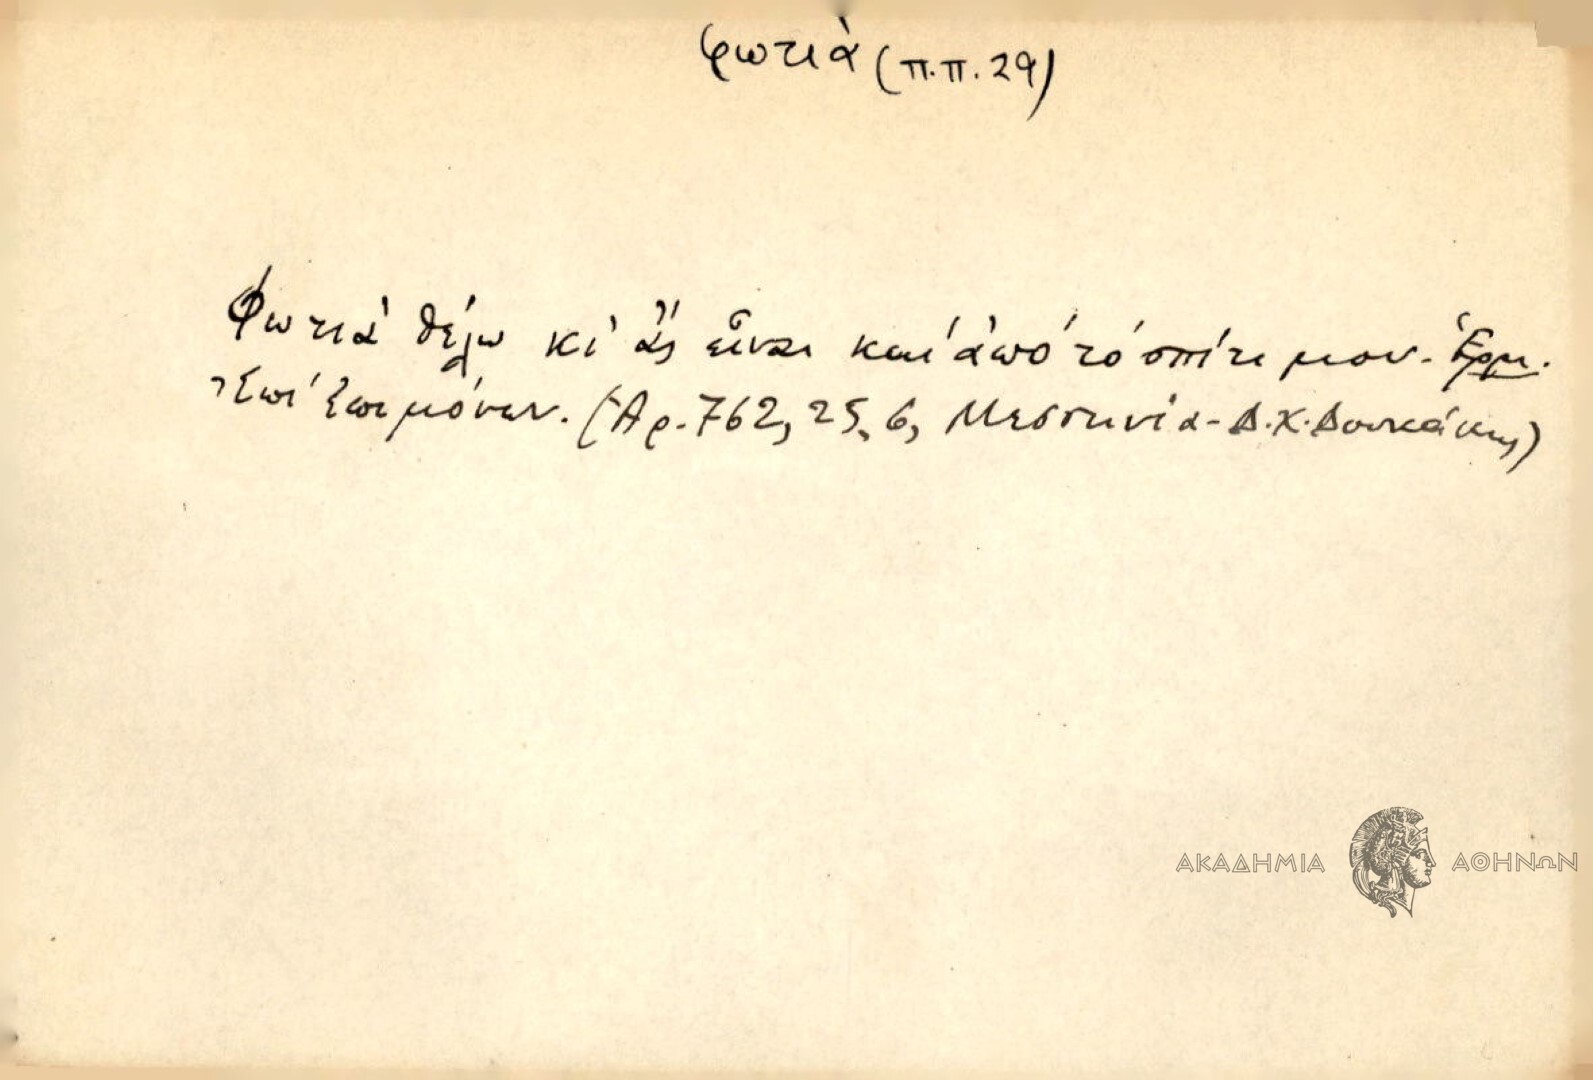 φωτιὰ (π.π. 29)
Φωτιὰ θέλω κι' ἂς εἶναι καὶ ἀπὸ τὸ σπίτι μου. Ἑρμ.
Ἐπὶ ἐπιμόνων. (Ἀρ. 762, 25, 6, Μεσσηνία - Δ.Χ. Δουκάκης)
ΑΚΑΔΗΜΙΑ ΑΘΗΝΩΝ